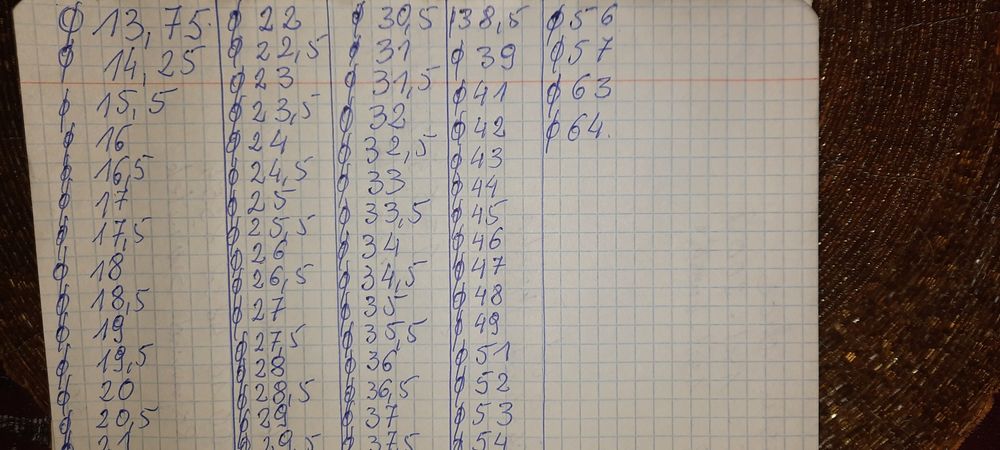 Ø 13,75
Ø 14,25
ø 15,5
ø 16
ø 16,5
ø 17
ø 17,5
ø 18
ø 18,5
ø 19
ø 19,5
ø 20
ø 20,5
ø 21
ø 22
ø 22,5
ø 23
ø 23,5
ø 24
ø 24,5
ø 25
ø 25,5
ø 26
ø 26,5
ø 27
ø 27,5
ø 28
ø 28,5
ø 29
ø 29,5
ø 30,5
ø 31
ø 31,5
ø 32
ø 32,5
ø 33
ø 33,5
ø 34
ø 34,5
ø 35
ø 35,5
ø 36
ø 36,5
ø 37
ø 37,5
ø 38,5
ø 39
ø 41
ø 42
ø 43
ø 44
ø 45
ø 46
ø 47
ø 48
ø 49
ø 51
ø 52
ø 53
ø 54
ø 56
ø 57
ø 63
ø 64.